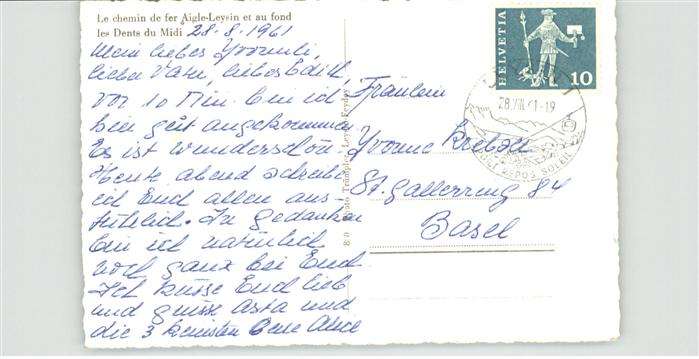 Le chemin de fer Aigle-Leysin et au fond
les Dents du Midi
28-8-1961
Mein liebes Yvonnli,
lieber Vater, liebes Edith,
vor 10 Min. bin ich
hier gut angekommen
Es ist wunderschön
Heute abend schreibe
ich Euch allen aus-
führlich. In Gedanken
bin ich natürlich
noch ganz bei Euch
Ich küsse Euch lieb
und grüsse Asta und
die 3 kleinsten Eure Alice
Fräulein
Yvonne
St. Gallerring 84
Basel
HELVETIA
10
28.VIII.61-19
REPOS SOLEIL